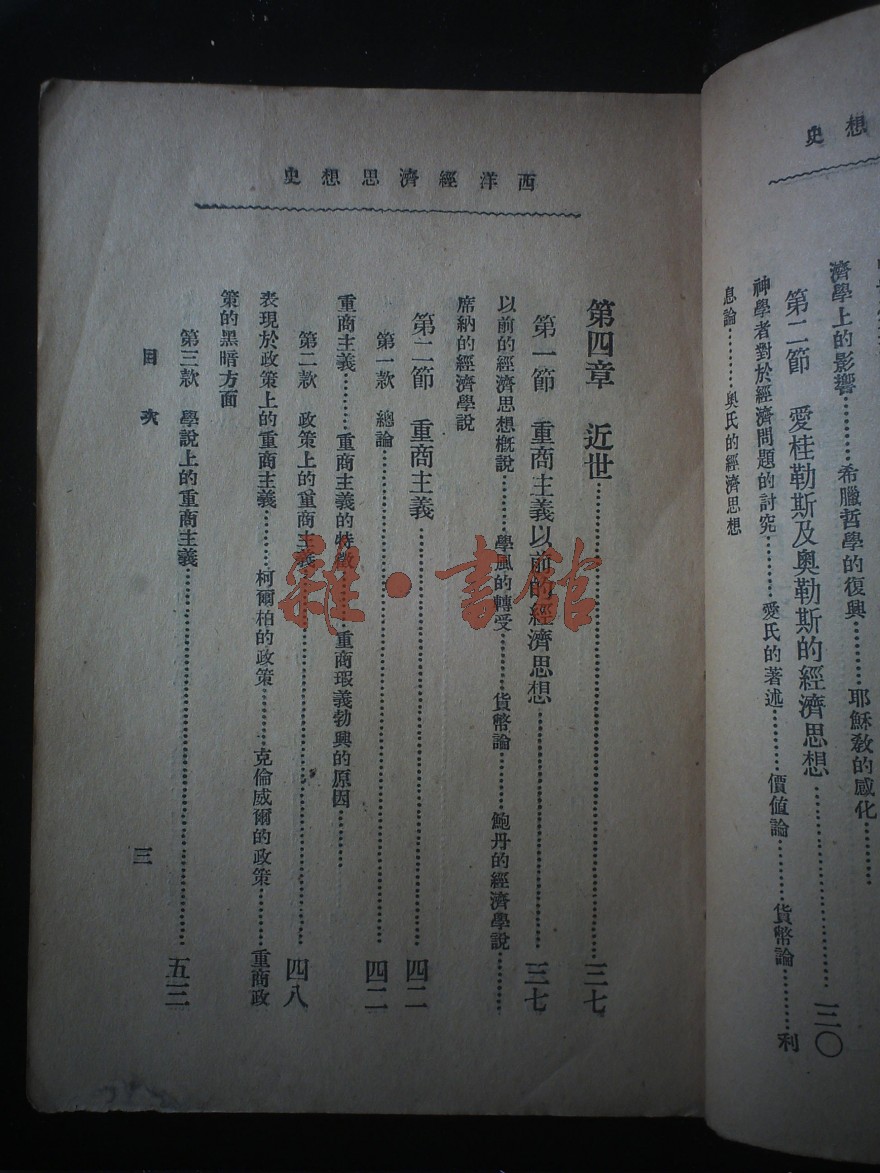 想史
濟學上的影響………希臘哲學的復興………耶穌教的感化………
第二節 愛桂勒斯及奥勒斯的經濟思想………三〇
神學者對於經濟問題的討究………愛氏的著述………價值論………貨幣論………利
息論………奥氏的經濟思想
西洋經濟思想史
第四章 近世………三七
第一節 重商主義以前的經濟思想………三七
以前的經濟思想概說………學風的轉受………貨幣論………鮑丹的經濟學說………
席納的經濟學說
第二節 重商主義………四二
第一款 總論………四二
重商主義………重商主義的特徵………重商瑕義勃興的原因………
第二款 政策上的重商主義………四八
表現於政策上的重商主義………柯爾柏的政策………克倫威爾的政策………重商政
策的黑暗方面
第三款 學說上的重商主義………五三
目次
三
雜·書館